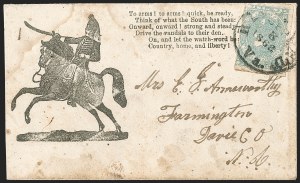 To arms! to arms! quick, be ready,
Think of what the South has been;
Onward, onward! strong and steady,
Drive the vandals to their den.
On, and let the watch-word be
Country, home, and liberty!
Va.
Mrs C. A. Ainsworthy
Farmington
Davie CO
N. C.